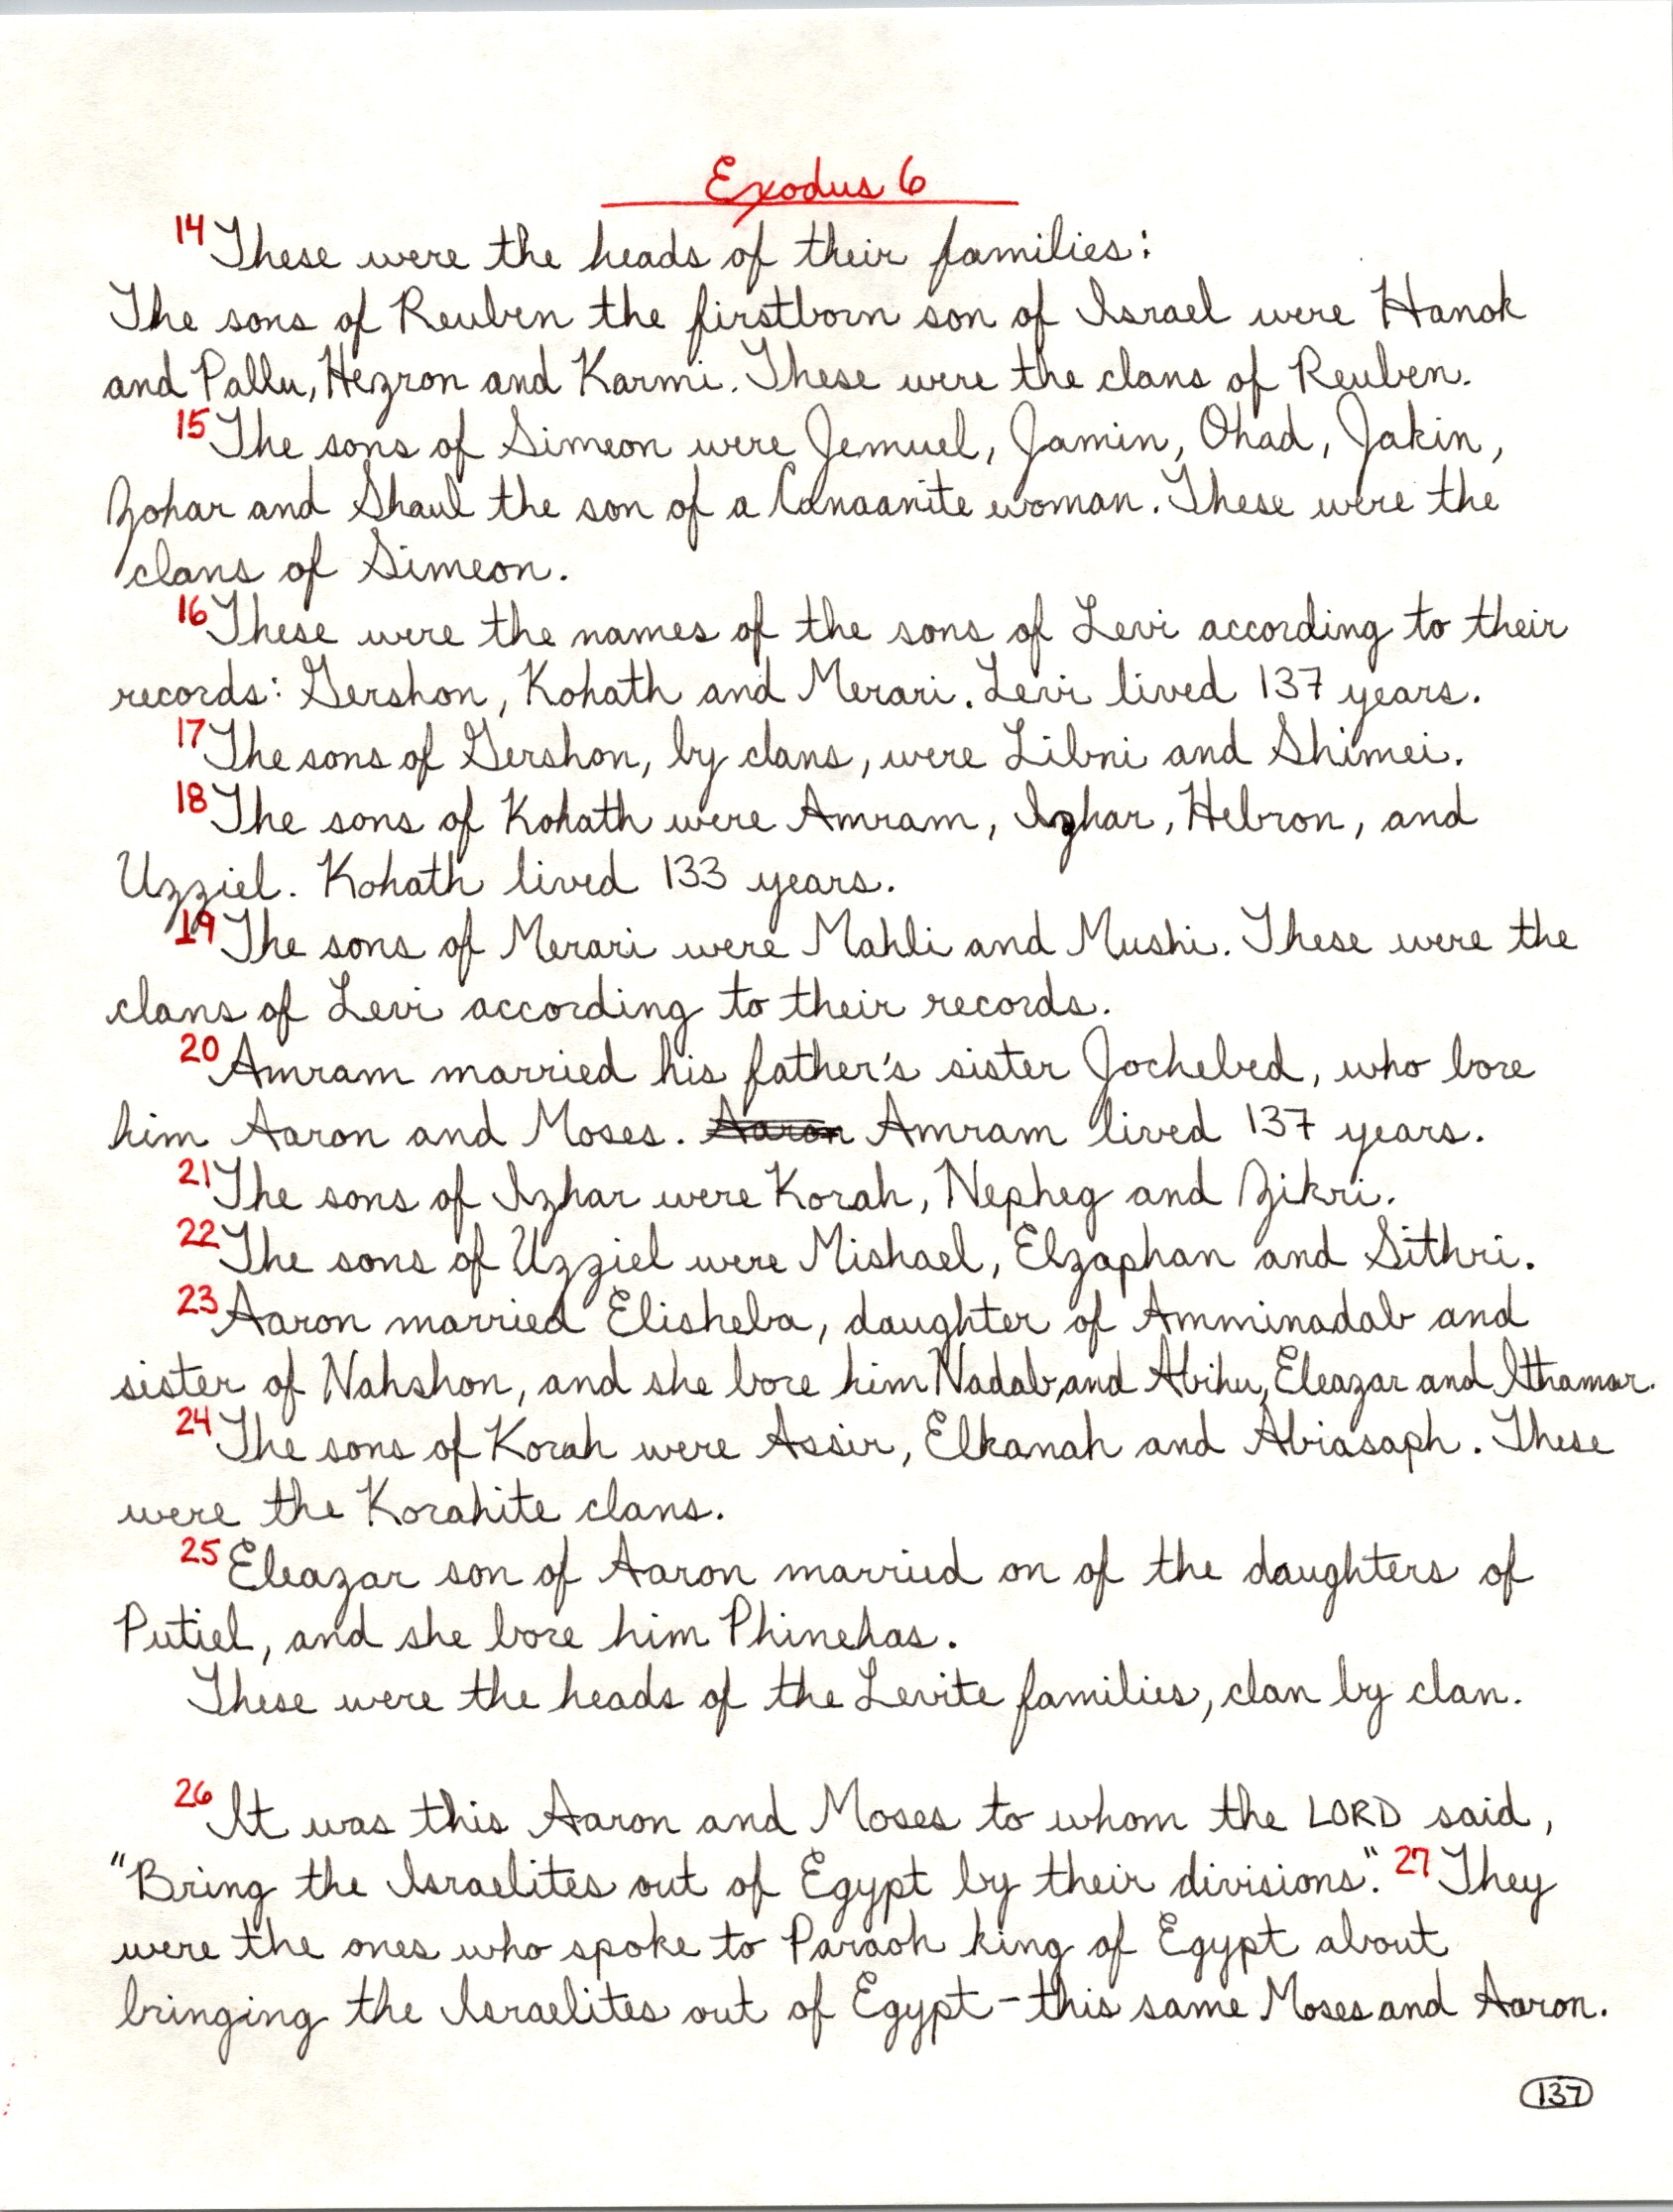 Exodus 6
14 These were the heads of their families:
The sons of Reuben the firstborn son of Israel were Hanok
and Pallu, Hezron and Karmi. These were the clans of Reuben.
15 The sons of Simeon were Jemuel, Jamin, Ohad, Jakin,
Zohar and Shaul the son of a Canaanite woman. These were the
clans of Simeon.
16 These were the names of the sons of Levi according to their
records: Gershon, Kohath and Merari. Levi lived 137 years.
17 The sons of Gershon, by clans, were Libni and Shimei.
18 The sons of Kohath were Amram, Izhar, Hebron, and
Uzziel. Kohath lived 133 years.
19 The sons of Merari were Mahli and Mushi. These were the
clans of Levi according to their records.
20 Amram married his father's sister Jochebed, who bore
him Aaron and Moses. Aaron Amram lived 137 years.
21 The sons of Izhar were Korah, Nepheg and Zikri.
22 The sons of Uzziel were Mishael, Elzaphan and Sithri.
23 Aaron married Elisheba, daughter of Amminadab and
sister of Nahshon, and she bore him Nadab and Abihu, Eleazar and Ithamar.
24 The sons of Korah were Assir, Elkanah and Abiasaph. These
were the Korahite clans.
25 Eleazar son of Aaron married on of the daughters of
Putiel, and she bore him Phinehas.
These were the heads of the Levite families, clan by clan.
26 It was this Aaron and Moses to whom the LORD said,
"Bring the Israelites out of Egypt by their divisions." 27 They
were the ones who spoke to Paraoh king of Egypt about
bringing the Israelites out of Egypt - this same Moses and Aaron.
137